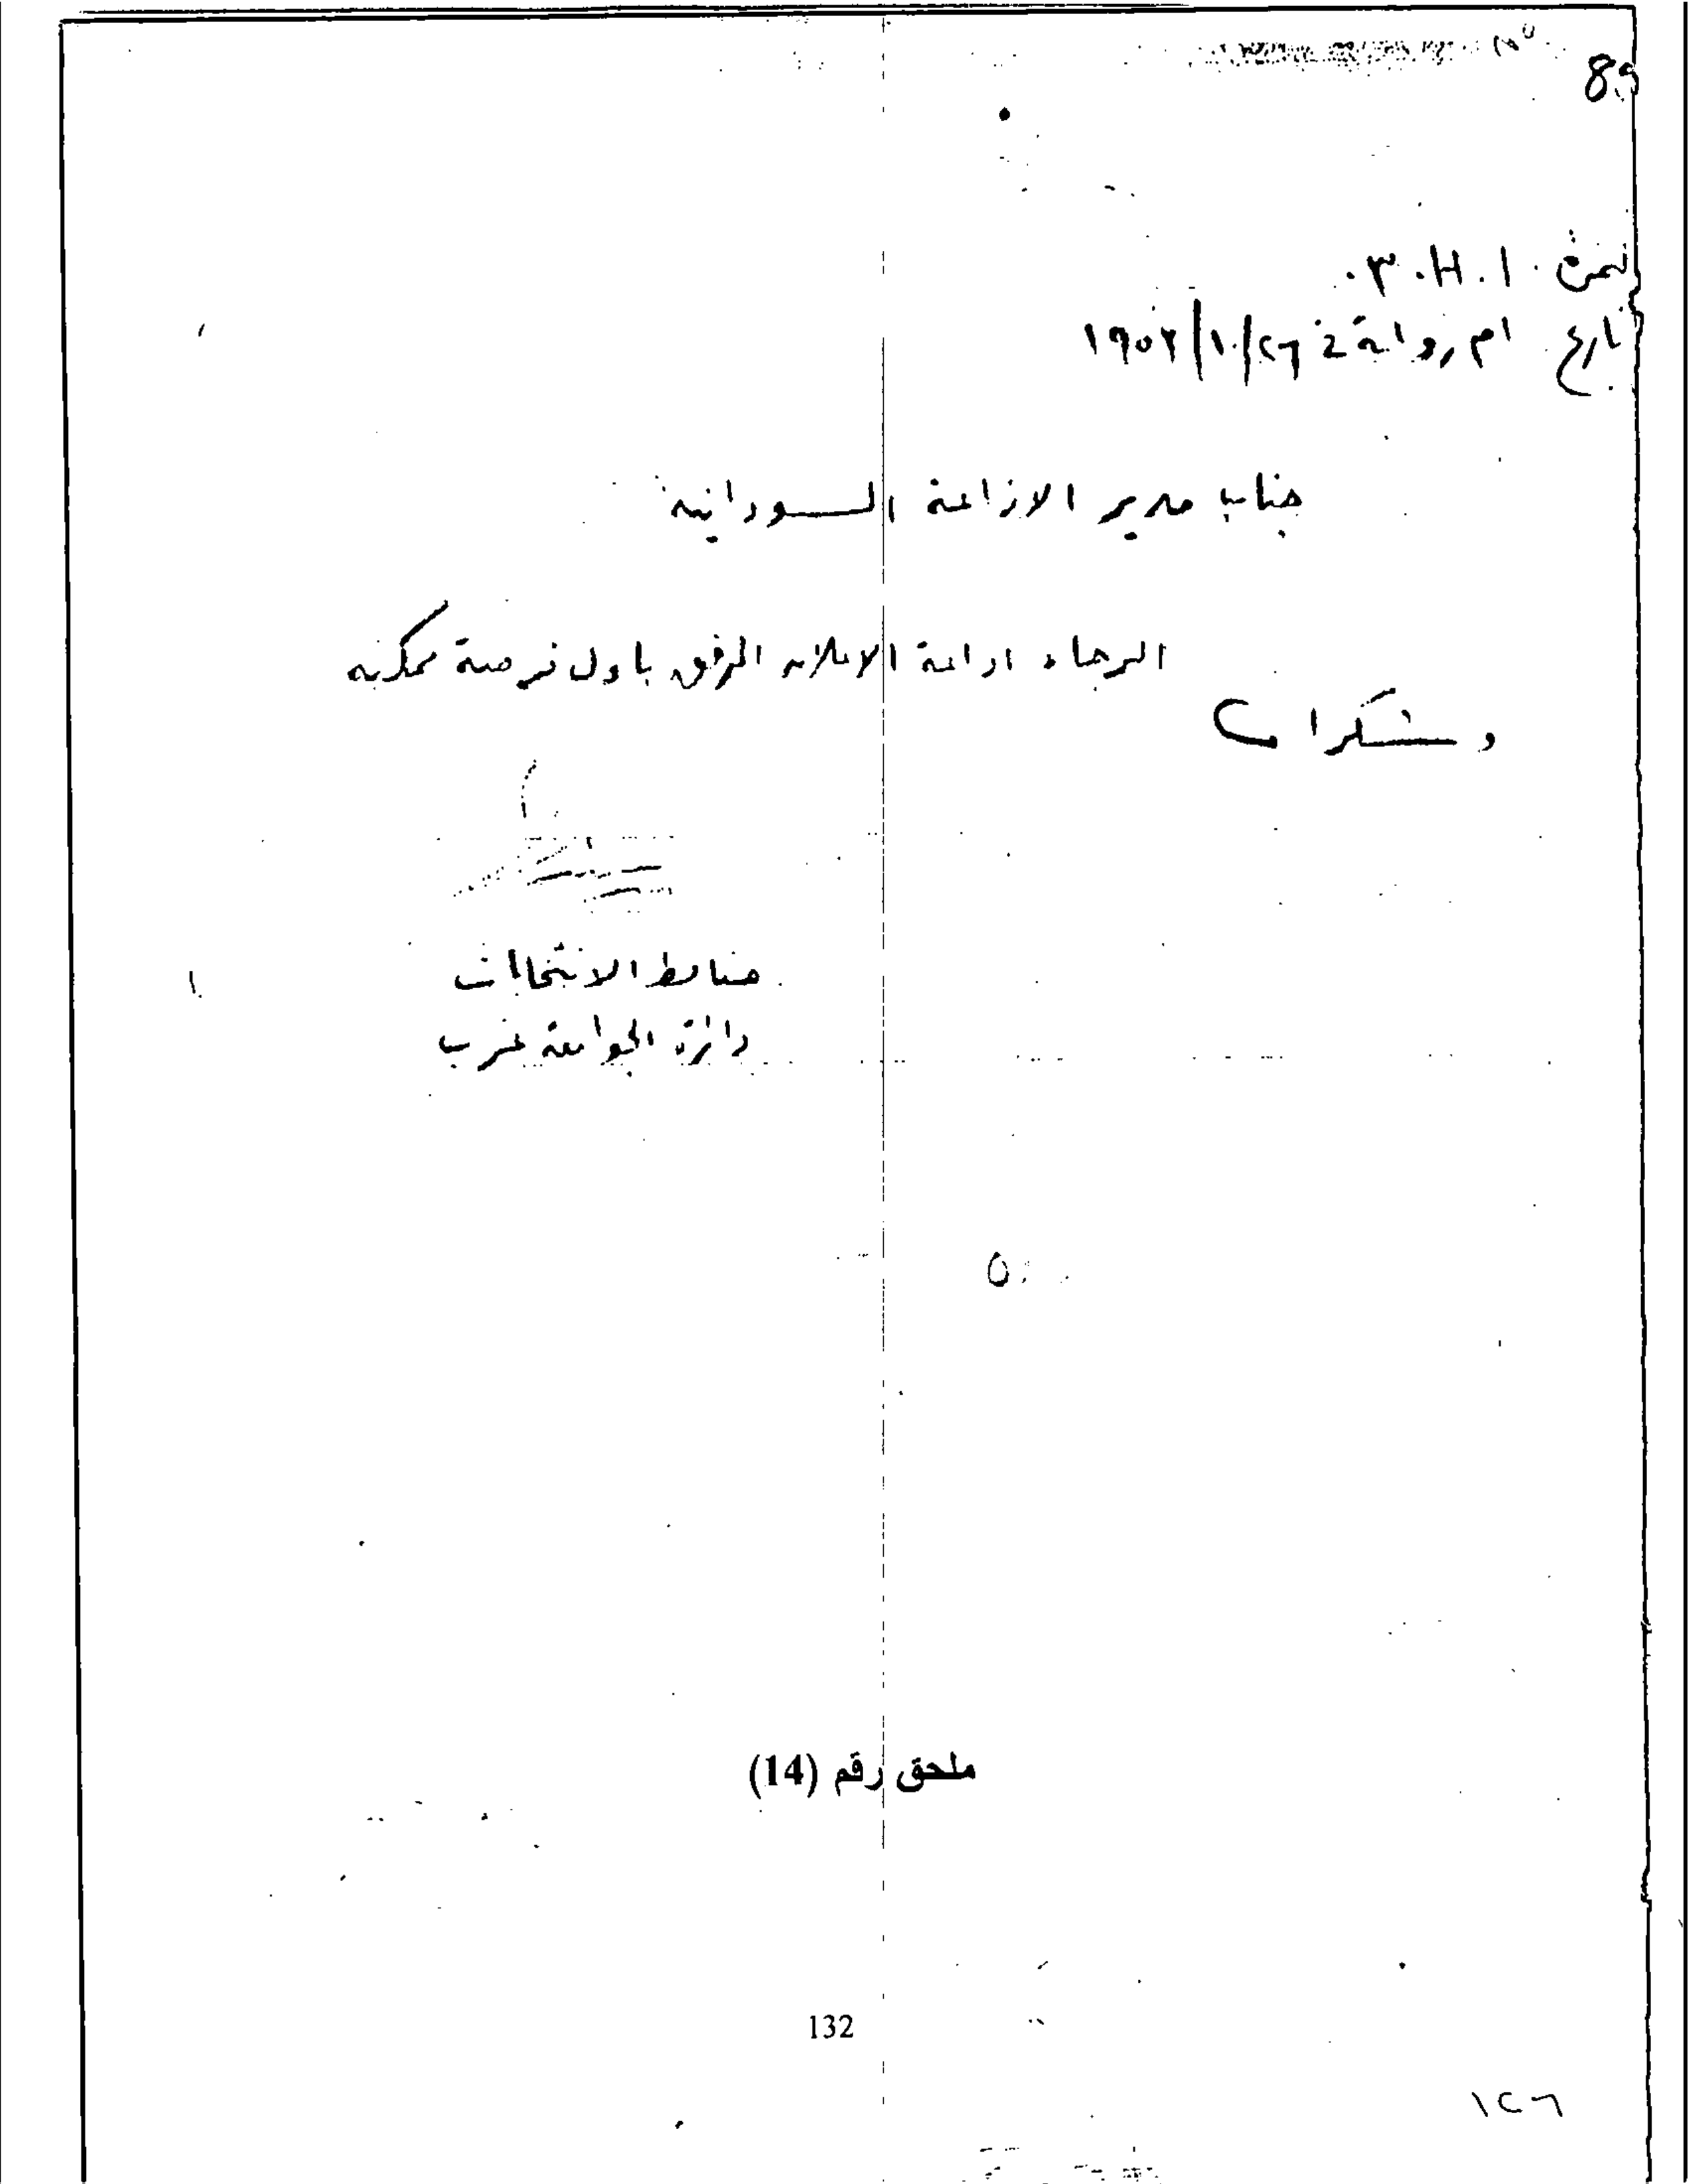 89
نمرة ٠ ا . H . ٣ .
تاريخ ام روابة في ٢٦/١٠/١٩٥٣
جناب مدير الازاعة السودانية
الرجاء اذاعة الاعلان المرفق باول فرصة ممكنه
وشكرا
ضابط الانتخابات
دائرة الجوامعة غرب
ملحق رقم (14)
132
١٢٦